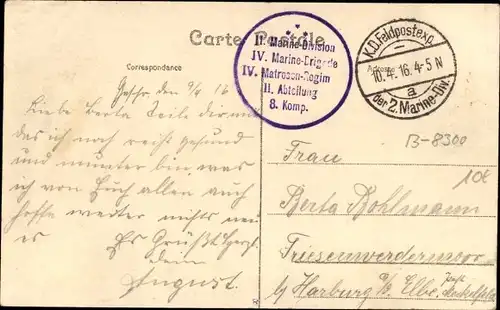 Carte Postale
Correspondance
II. Marine-Division
IV. Marine-Brigade
IV. Matrosen-Regim
II. Abteilung
8. Komp.
K.D. Feldpostexp.
10.4.16.4-5 N
a
der 2. Marine-Div.
B-8300
10€
Gesch. den 9/4 16
Liebe Berta Teile dir mit
das ich noch recht gesund
und munter bin, was
ich von Euch allen auch
hoffe weiter nichts neu
es Es Grüßt Herzl.
dein
August.
Frau
Berta Bohlmann
Friesenwerdermoor
by Harburg a/d. Elbe.
Post